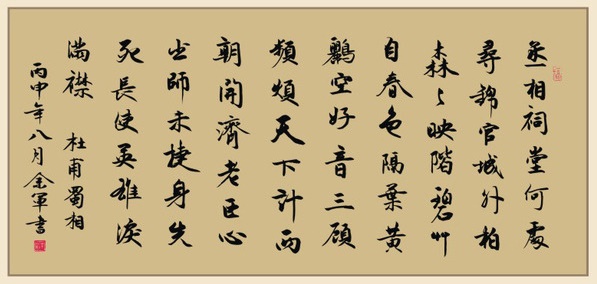 丞相祠堂何處
尋錦官城外柏
森々映階碧艸
自春色隔葉黃
鸝空好音三顧
頻煩天下計兩
朝開濟老臣心
出師未捷身先
死長使英雄淚
滿襟 杜甫蜀相
丙申年八月金軍書